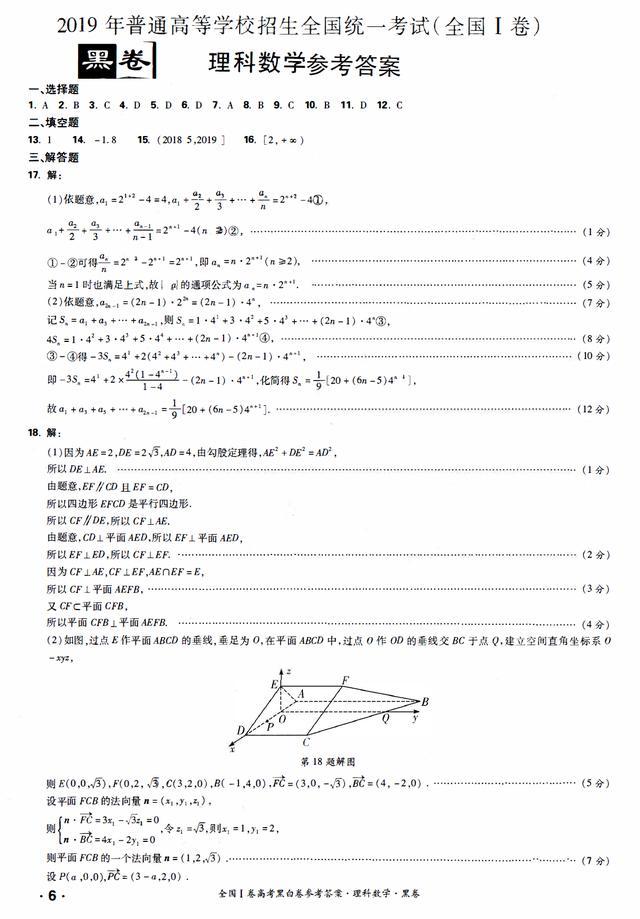 2019 年普通高等学校招生全国统一考试(全国 I 卷)
黑卷 理科数学参考答案
一、选择题
1. A 2. B 3. C 4. D 5. D 6. D 7. A 8. B 9. C 10. B 11. D 12. C
二、填空题
13. 1 14. -1.8 15. (2018 5,2019 ] 16. [2,+∞)
三、解答题
17. 解:
(1)依题意,a₁=2¹⁺²-4=4,a₁+a₂/2+a₃/3+…+aₙ/n=2ⁿ⁺²-4①,
a₁+a₂/2+a₃/3+…+aₙ₋₁/(n-1)=2ⁿ⁺¹-4(n ②, (1 分)
①-②可得aₙ/n=2ⁿ -2ⁿ⁺¹=2ⁿ⁺¹,即 aₙ=n·2ⁿ⁺¹(n≥2), (4 分)
当 n=1 时也满足上式,故 的通项公式为 aₙ=n·2ⁿ⁺¹. (5 分)
(2)依题意,a₂ₙ₋₁=(2n-1)·2²ⁿ=(2n-1)·4ⁿ, (7 分)
记 Sₙ=a₁+a₃+…+a₂ₙ₋₁,则 Sₙ=1·4¹+3·4²+5·4³+…+(2n-1)·4ⁿ③,
4Sₙ=1·4²+3·4³+5·4⁴+…+(2n-1)·4ⁿ⁺¹④, (8 分)
③-④得-3Sₙ=4¹+2(4²+4³+…+4ⁿ)-(2n-1)·4ⁿ⁺¹, (10 分)
即-3Sₙ=4¹+2×4²(1-4ⁿ⁻¹)/(1-4)-(2n-1)·4ⁿ⁺¹,化简得 Sₙ=1/9[20+(6n-5)4ⁿ ¹],
故 a₁+a₃+a₅+…+a₂ₙ₋₁=1/9[20+(6n-5)4ⁿ⁺¹]. (12 分)
18. 解:
(1)因为 AE=2,DE=2√3,AD=4,由勾股定理得,AE²+DE²=AD²,
所以 DE⊥AE. (1 分)
由题意,EF∥CD 且 EF=CD,
所以四边形 EFCD 是平行四边形.
所以 CF∥DE,所以 CF⊥AE.
由题意,CD⊥平面 AED,所以 EF⊥平面 AED,
所以 EF⊥ED,所以 CF⊥EF. (2 分)
因为 CF⊥AE,CF⊥EF,AE∩EF=E,
所以 CF⊥平面 AEFB, (3 分)
又 CF⊂平面 CFB,
所以平面 CFB⊥平面 AEFB. (4 分)
(2)如图,过点 E 作平面 ABCD 的垂线,垂足为 O,在平面 ABCD 中,过点 O 作 OD 的垂线交 BC 于点 Q,建立空间直角坐标系 O
-xyz,
z
E F
A B
O Q y
P
D C
x
第 18 题解图
则 E(0,0,√3),F(0,2,√3),C(3,2,0),B(-1,4,0),FC→=(3,0,-√3),BC→=(4,-2,0). (5 分)
设平面 FCB 的法向量 n=(x₁,y₁,z₁),
则{n·FC→=3x₁-√3z₁=0
n·BC→=4x₁-2y₁=0,令 z₁=√3,则 x₁=1,y₁=2,
则平面 FCB 的一个法向量 n=(1,2,√3). (7 分)
设 P(a,0,0),PC→=(3-a,2,0).
·6· 全国 I 卷高考黑白卷参考答案·理科数学·黑卷